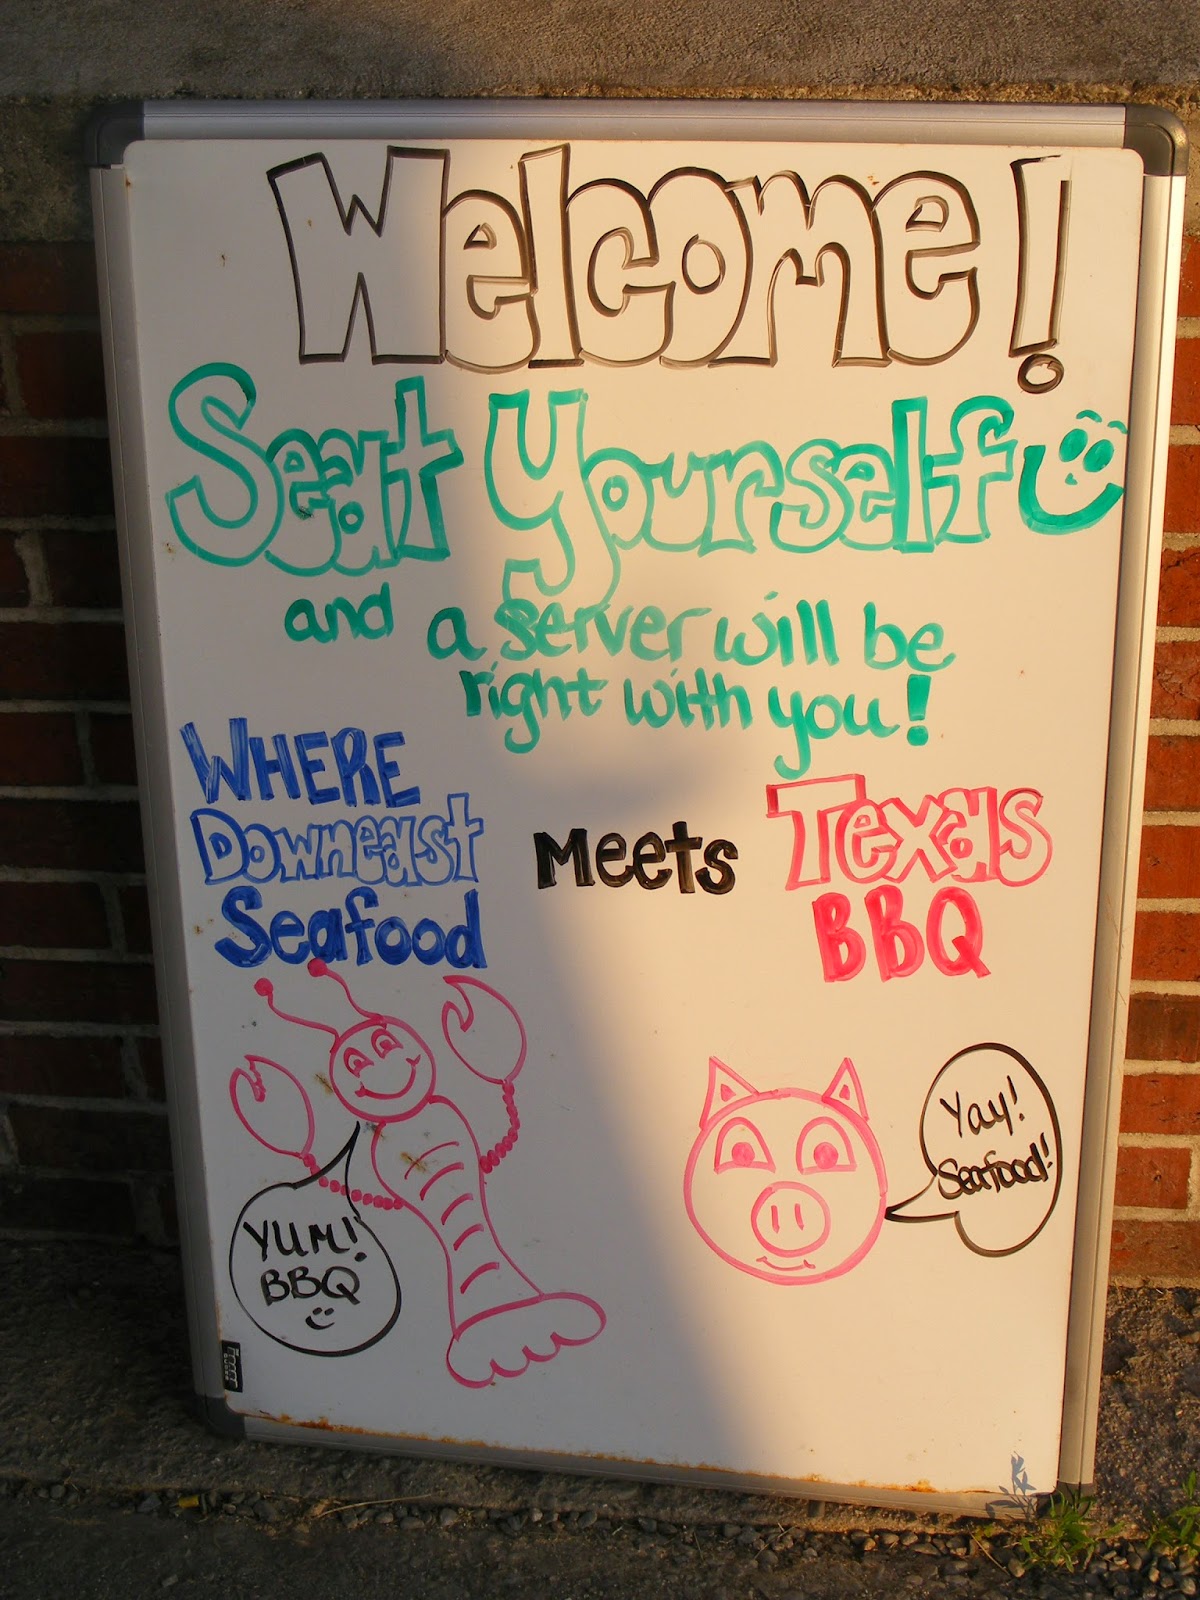 Welcome!
Seat Yourself
and a server will be
right with you!
WHERE
Downeast
Seafood
Meets
Texas
BBQ
Yay!
Seafood!
YUM!
BBQ